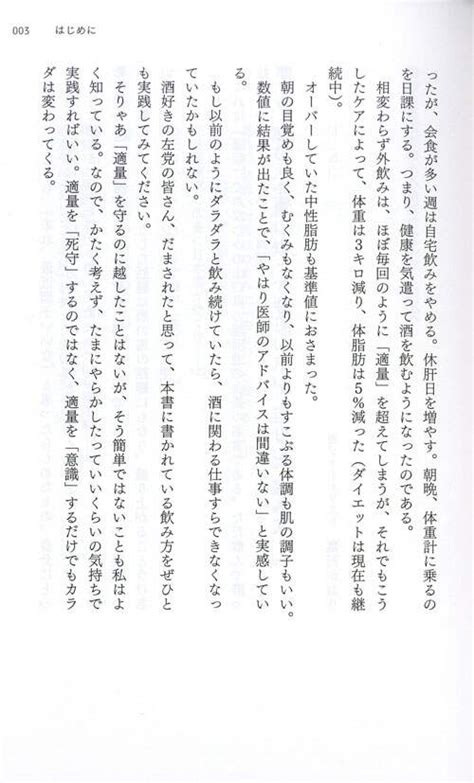 003　はじめに
ったが、会食が多い週は自宅飲みをやめる。休肝日を増やす。朝晩、体重計に乗るの
を日課にする。つまり、健康を気遣って酒を飲むようになったのである。
相変わらず外飲みは、ほぼ毎回のように「適量」を超えてしまうが、それでもこう
したケアによって、体重は3キロ減り、体脂肪は5％減った（ダイエットは現在も継
続中）。
オーバーしていた中性脂肪も基準値におさまった。
朝の目覚めも良く、むくみもなくなり、以前よりもすこぶる体調も肌の調子もいい。
数値に結果が出たことで、「やはり医師のアドバイスは間違いない」と実感してい
る。
もし以前のようにダラダラと飲み続けていたら、酒に関わる仕事すらできなくなっ
ていたかもしれない。
酒好きの左党の皆さん、だまされたと思って、本書に書かれている飲み方をぜひと
も実践してみてください。
そりゃあ「適量」を守るのに越したことはないが、そう簡単ではないことも私はよ
く知っている。なので、かたく考えず、たまにやらかしたっていいくらいの気持ちで
実践すればいい。適量を「死守」するのではなく、適量を「意識」するだけでもカラ
ダは変わってくる。